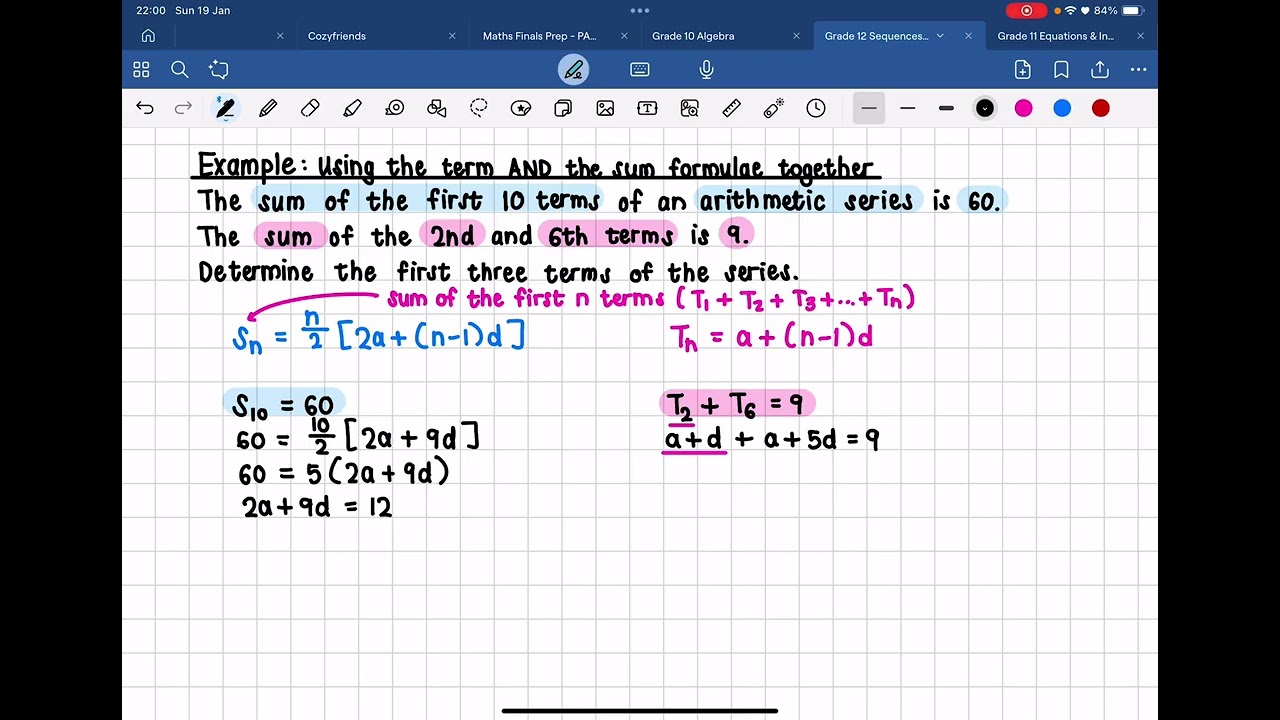 22:00 Sun 19 Jan
84%
Cozyfriends
Maths Finals Prep - PA...
Grade 10 Algebra
Grade 12 Sequences...
Grade 11 Equations & In...
Example: Using the term AND the sum formulae together
The sum of the first 10 terms of an arithmetic series is 60.
The sum of the 2nd and 6th terms is 9.
Determine the first three terms of the series.
sum of the first n terms (T₁ + T₂ + T₃ + ... + Tn)
Sn = n/2 [2a + (n-1)d]
Tn = a + (n-1)d
S₁₀ = 60
60 = 10/2 [2a + 9d]
60 = 5(2a + 9d)
2a + 9d = 12
T₂ + T₆ = 9
a + d + a + 5d = 9